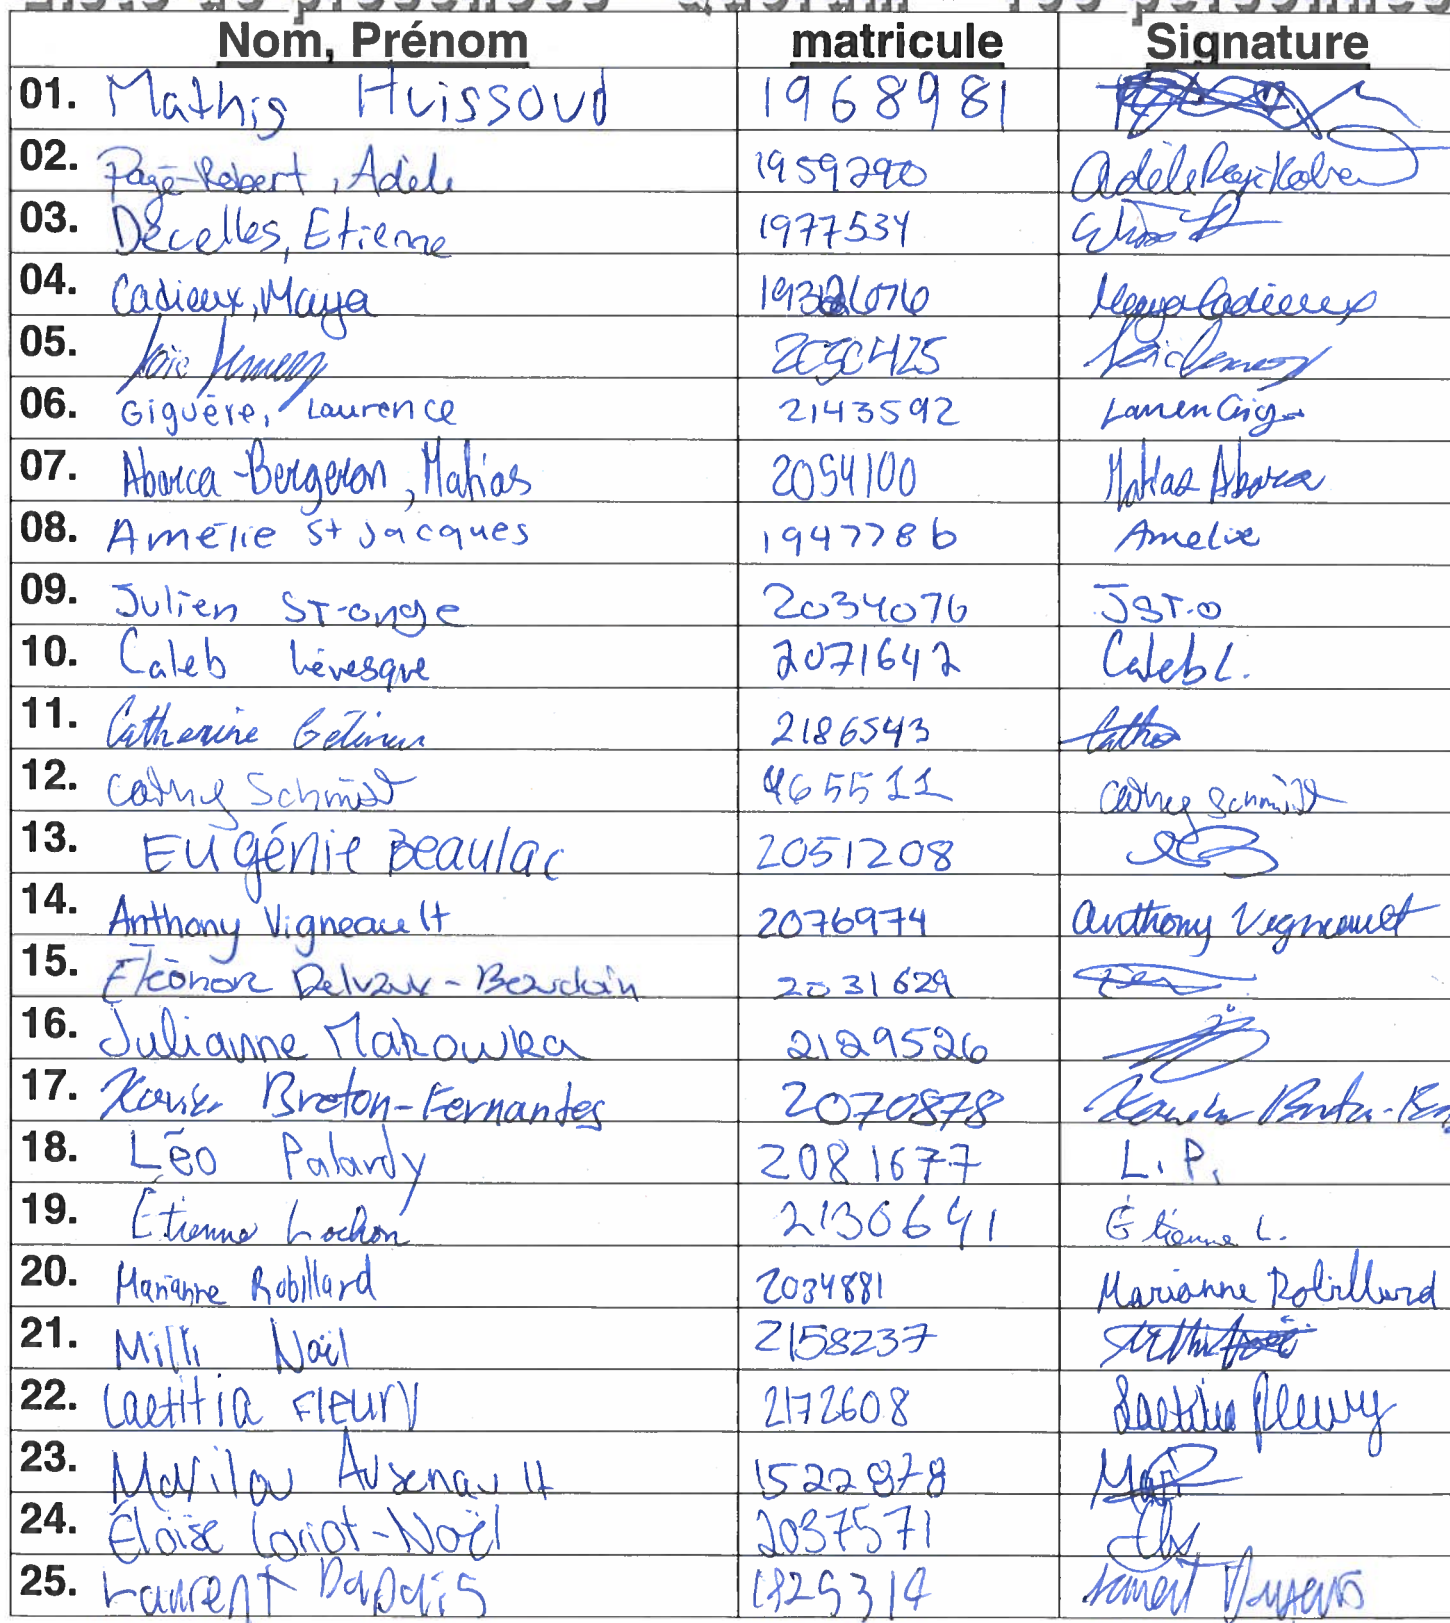 Liste de présences - Quorum - 100 personnes
Nom, Prénom matricule Signature
01. Mathis Huissoud 1968981
02. Pagé-Robert, Adèle 1959290 Adèle Pagé-Rober
03. Décelles, Etienne 1977534
04. Cadieux, Maya Maya Cadieux
05. Loïc
06. Giguère, Laurence 2143592
07. Abarca-Bergeron, Matias 2054100 Matias Abarca
08. Amélie St Jacques 1947786 Amélie
09. Julien St-onge 2034076 JST.O
10. Caleb Lévesque 2071642 Caleb L.
11. Catherine Gélinas 2186543 Cath
12. Cathy Schmidt 465511 Cathy Schmidt
13. Eugénie Beaulac 2051208
14. Anthony Vigneault 2076974 Anthony Vigneault
15. Éléonore Delvaux-Beaudoin 2031629
16. Julianne Makowka 2129526
17. Xavier Breton-Fernantes 2070878 Xavier
18. Léo Palardy 2081677 L.P.
19. Étienne Lochon 2130641 Étienne L.
20. Marianne Robillard 2034881 Marianne Robillard
21. Milli Noël 2158237
22. Laetitia Fleury 2172608 Laetitia Fleury
23. Marilou Arsenault 1522878 Mari
24. Éloïse Loriot-Noël 2037571
25. Laurent 1825314 Laurent